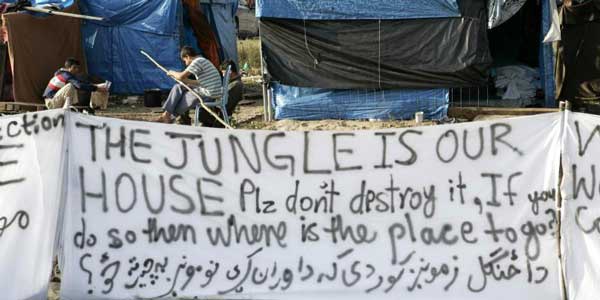 ction
THE JUNGLE IS OUR
HOUSE Plz don't destroy it, If you
do so then where is the place to go?
دا ځنګل زمونږ کور دی که دا وران کړی نو مونږ په چیرته ځو؟
go